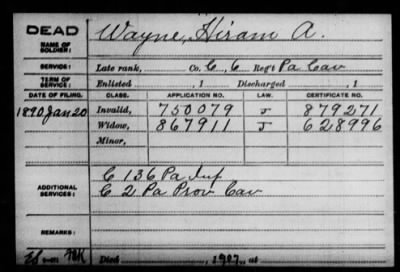 DEAD
NAME OF SOLDIER:
Wayne, Hiram A.
SERVICE:
Late rank, Co. C, 6 Reg't Pa Cav
TERM OF SERVICE:
Enlisted , 1 Discharged , 1
DATE OF FILING. CLASS. APPLICATION NO. LAW. CERTIFICATE NO.
1890 Jan 20 Invalid, 750079 J 879271
Widow, 867911 J 628996
Minor,
ADDITIONAL SERVICES:
C 136 Pa Inf
C 2 Pa Prov Cav
REMARKS:
Died , 1907, at